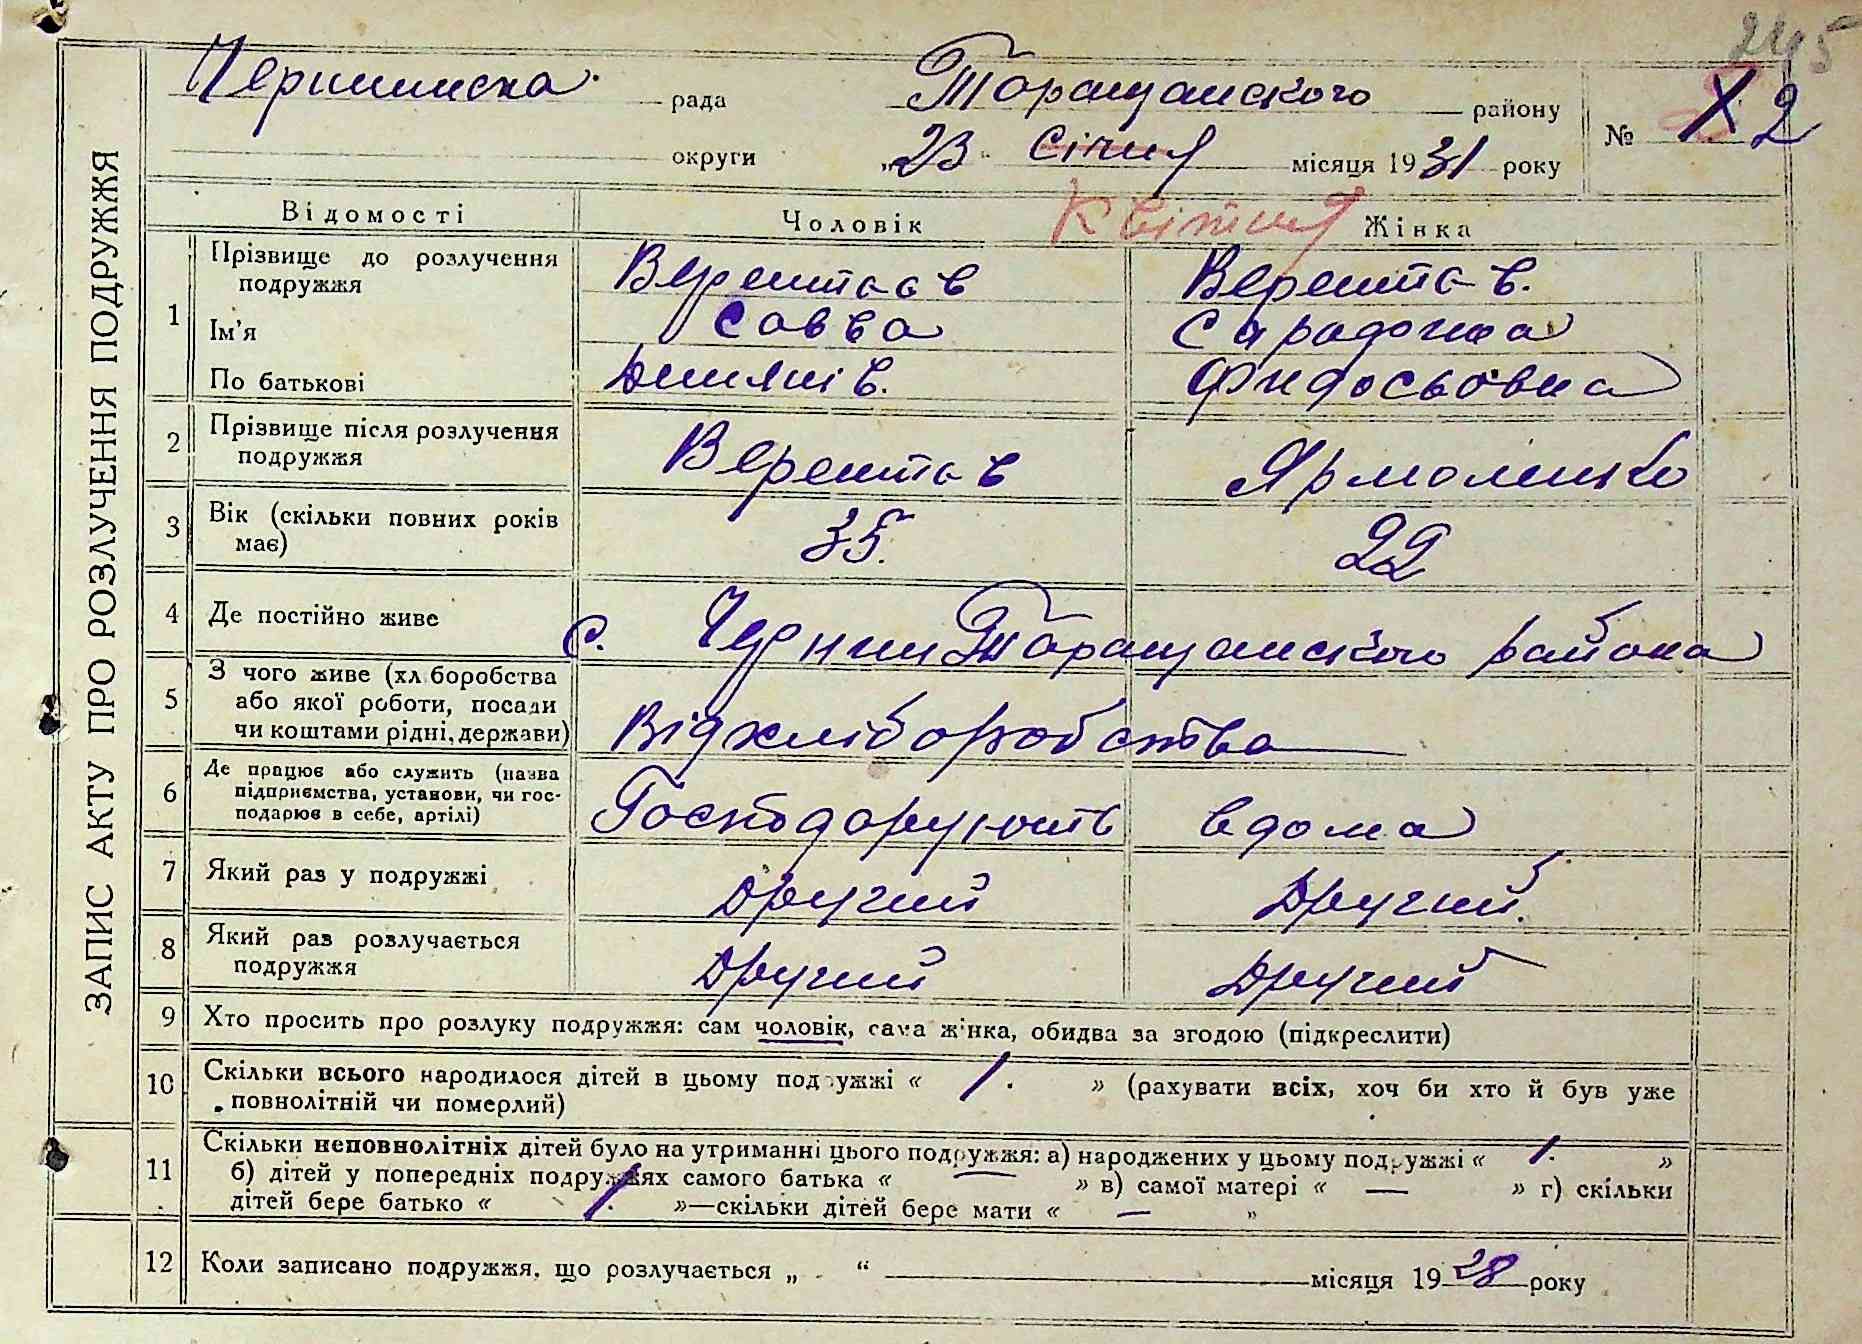 245
ЗАПИС АКТУ ПРО РОЗЛУЧЕННЯ ПОДРУЖЖЯ
рада Таращанського району
№ 2
округи „23“ січня місяця 1931 року
квітня
Відомості Чоловік Жінка
1 Прізвище до розлучення подружжя Верештаєв Верештаєв.
Ім'я Савва
По батькові Феодосьовна
2 Прізвище після розлучення подружжя Верештаєв Ярмоленко
3 Вік (скільки повних років має) 35. 22
4 Де постійно живе с. Чернин Таращанського района
5 З чого живе (хліборобства або якої роботи, посади чи коштами рідні, держави) Відхліборобства
6 Де працює або служить (назва підприємства, установи, чи господарює в себе, артілі) Господарують вдома
7 Який раз у подружжі Другий Другий.
8 Який раз розлучається подружжя Другий Другий
9 Хто просить про розлуку подружжя: сам чоловік, сама жінка, обидва за згодою (підкреслити)
10 Скільки всього народилося дітей в цьому подружжі « 1. » (рахувати всіх, хоч би хто й був уже
повнолітній чи померлий)
11 Скільки неповнолітніх дітей було на утриманні цього подружжя: а) народжених у цьому подружжі « 1. »
б) дітей у попередніх подружжях самого батька « — » в) самої матері « — » г) скільки
дітей бере батько « 1. »—скільки дітей бере мати « — »
12 Коли записано подружжя, що розлучається „ “ місяця 1928 року